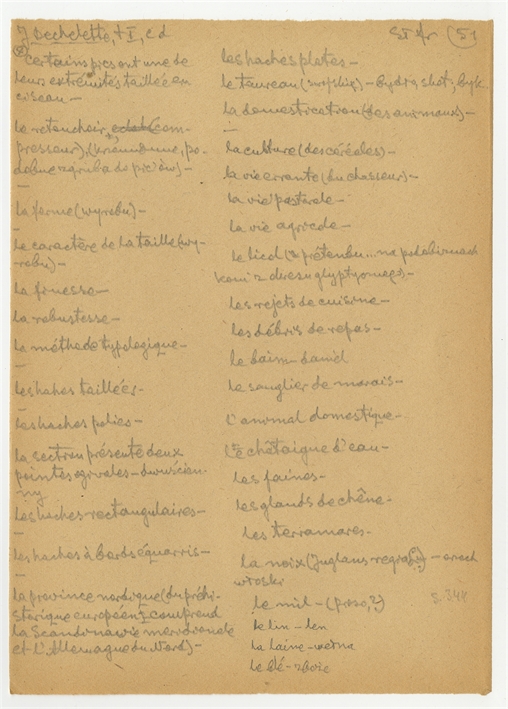 J. Dechelette, t I, c d
certains pics ont une de
leurs extrémités taillée en
ciseau —
le retouchoir, (com-
presseur), (krzemienne, po-
dobne z gruba do pic'ów) —
la forme (wyrobu) —
le caractère de la taille (wy-
robu) —
la finesse —
la robustesse —
la méthode typologique —
les haches taillées —
les haches polies —
la section présente deux
pointes ogivales — dwuścien-
ny
les haches rectangulaires —
les haches à bords équarris —
la province nordique (du préhi-
storique européen) comprend
la Scandinavie méridionale
et l'Allemagne du Nord) —
(51
les haches plates —
le taureau — bydło,
la domestication (des animaux) —
la culture (des céréales) —
la vie errante (du chasseur) —
la vie pastorale —
la vie agricole —
le licol (prétendu... na podobiznach
koni z okresu glyptycznego) —
les rejets de cuisine —
les débris de repas —
le daim — daniel
le sanglier de marais —
l'animal domestique —
la châtaigne d'eau —
les faînes —
les glands de chêne —
les terramares —
la noix (juglans regia) — orzech
włoski
le mil — (proso, ?)
le lin — len
la laine — wełna
le blé — zboże
s. 344